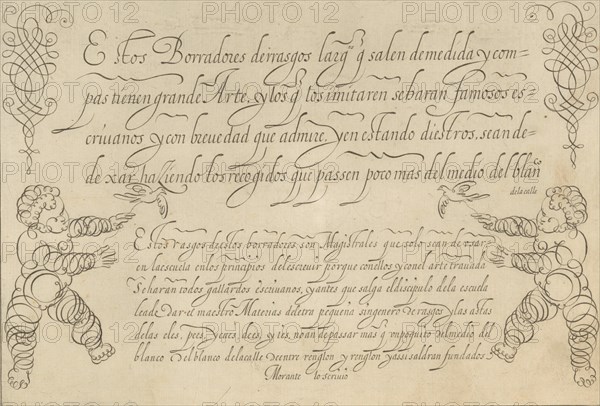 Estos Borradores de rrasgos largos q̃ salen demedida y com-
pas tienen grande Arte. y los q̃ los imitaren se haran famosos es-
criuanos y con breuedad que admire, y en estando diestros, sean de-
de xar, haziendo los recogidos, que passen poco mas del medio del blanco
dela calle
Estos rasgos destos borradores son Magistrales que solo sean de usar
en la escuela en los principios del escreuir porque con ellos y con el arte trauada
Se haran todos gallardos escriuanos, y antes que salga el discipulo dela escuela
leade dar el maestro Materias de letra pequeña sin genero de rasgos y las astas
delas eles, pees, yeaes, dees, y tes, no an de passar mas q̃ un poquito del medio del
blanco O el blanco dela calle de entre renglon y renglon y assi saldran fundados
Morante lo scriuio